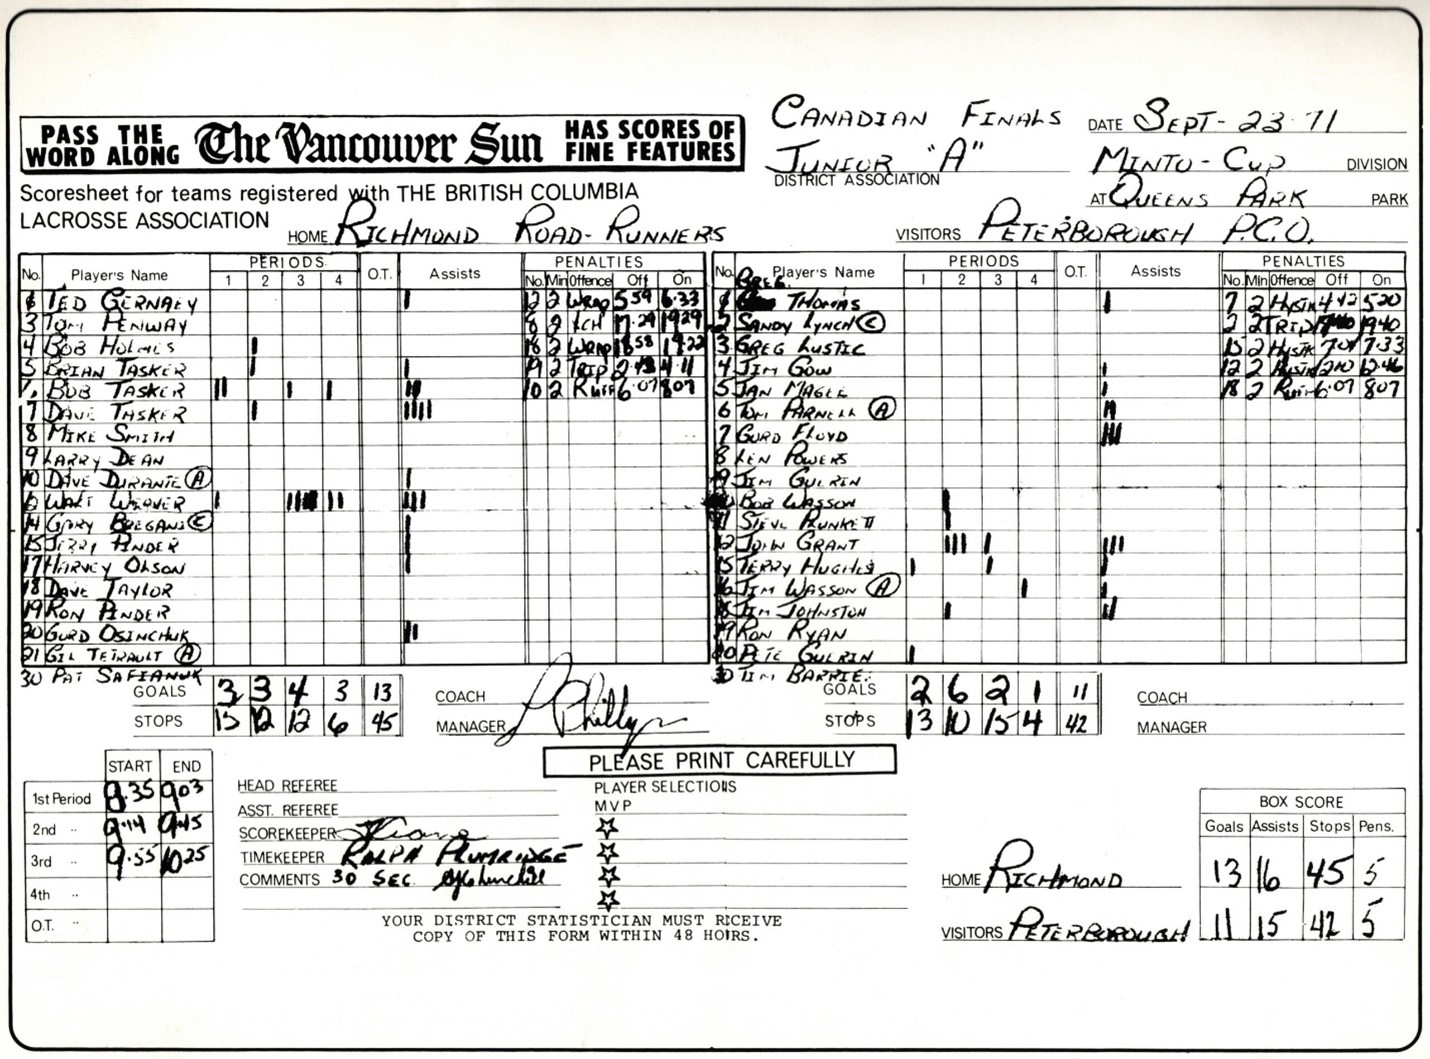 PASS THE WORD ALONG The Vancouver Sun HAS SCORES OF FINE FEATURES
CANADIAN FINALS
JUNIOR "A"
DISTRICT ASSOCIATION
DATE SEPT-23 71
MINTO-CUP DIVISION
AT QUEENS PARK PARK
Scoresheet for teams registered with THE BRITISH COLUMBIA
LACROSSE ASSOCIATION
HOME RICHMOND ROAD-RUNNERS
VISITORS PETERBOROUGH P.C.O.
No. Player's Name PERIODS 1 2 3 4 O.T. Assists PENALTIES No. Min Offence Off On
TED GERNAEY 12 2 WRAP 5 59 6.33
3 TOM PENWAY 8 2 17.29 1929
4 BOB HOLMES 18 2 WRAP
5 BRIAN TASKER 19 2 TRIP 4.11
BOB TASKER 10 2 RUFF 6.07 807
7 DAVE TASKER
8 MIKE SMITH
9 LARRY DEAN
10 DAVE DURANTE A
WALT WEAVER
14 GARY C
15 JERRY PINDER
17 HARVEY OLSON
18 DAVE TAYLOR
19 RON PINDER
20 GORD OSINCHUK
21 GIL TETRAULT A
30 PAT SAFIANUK
GOALS 3 3 4 3 13
STOPS 15 12 12 6 45
COACH
MANAGER
No. Player's Name PERIODS 1 2 3 4 O.T. Assists PENALTIES No. Min Offence Off On
GREG THOMAS 7 2 4 42 5 20
2 SANDY LYNCH C 2 2 TRIP 1740 1940
3 GREG LUSTIC 15 2 7.33
4 JIM GOW 12 2 12.46
5 JAN MAGEE 18 2 RUFF 6.07 807
6 TOM PARNELL A
7 GORD FLOYD
8 KEN POWERS
9 JIM GUERIN
BOB WASSON
11 STEVE
12 JOHN GRANT
15 TERRY HUGHES
16 JIM WASSON A
18 JIM JOHNSTON
19 RON RYAN
20 PETE GUERIN
30 TIM BARRIE
GOALS 2 6 2 1 11
STOPS 13 10 15 4 42
COACH
MANAGER
START END
1st Period 8.35 903
2nd " 9.14 9.45
3rd " 9.55 10 25
4th "
O.T. "
PLEASE PRINT CAREFULLY
HEAD REFEREE
ASST. REFEREE
SCOREKEEPER
TIMEKEEPER RALPH PLUMRIDGE
COMMENTS 30 SEC.
PLAYER SELECTIONS
MVP
YOUR DISTRICT STATISTICIAN MUST RECEIVE
COPY OF THIS FORM WITHIN 48 HOURS.
BOX SCORE
Goals Assists Stops Pens.
HOME RICHMOND 13 16 45 5
VISITORS PETERBOROUGH 11 15 42 5